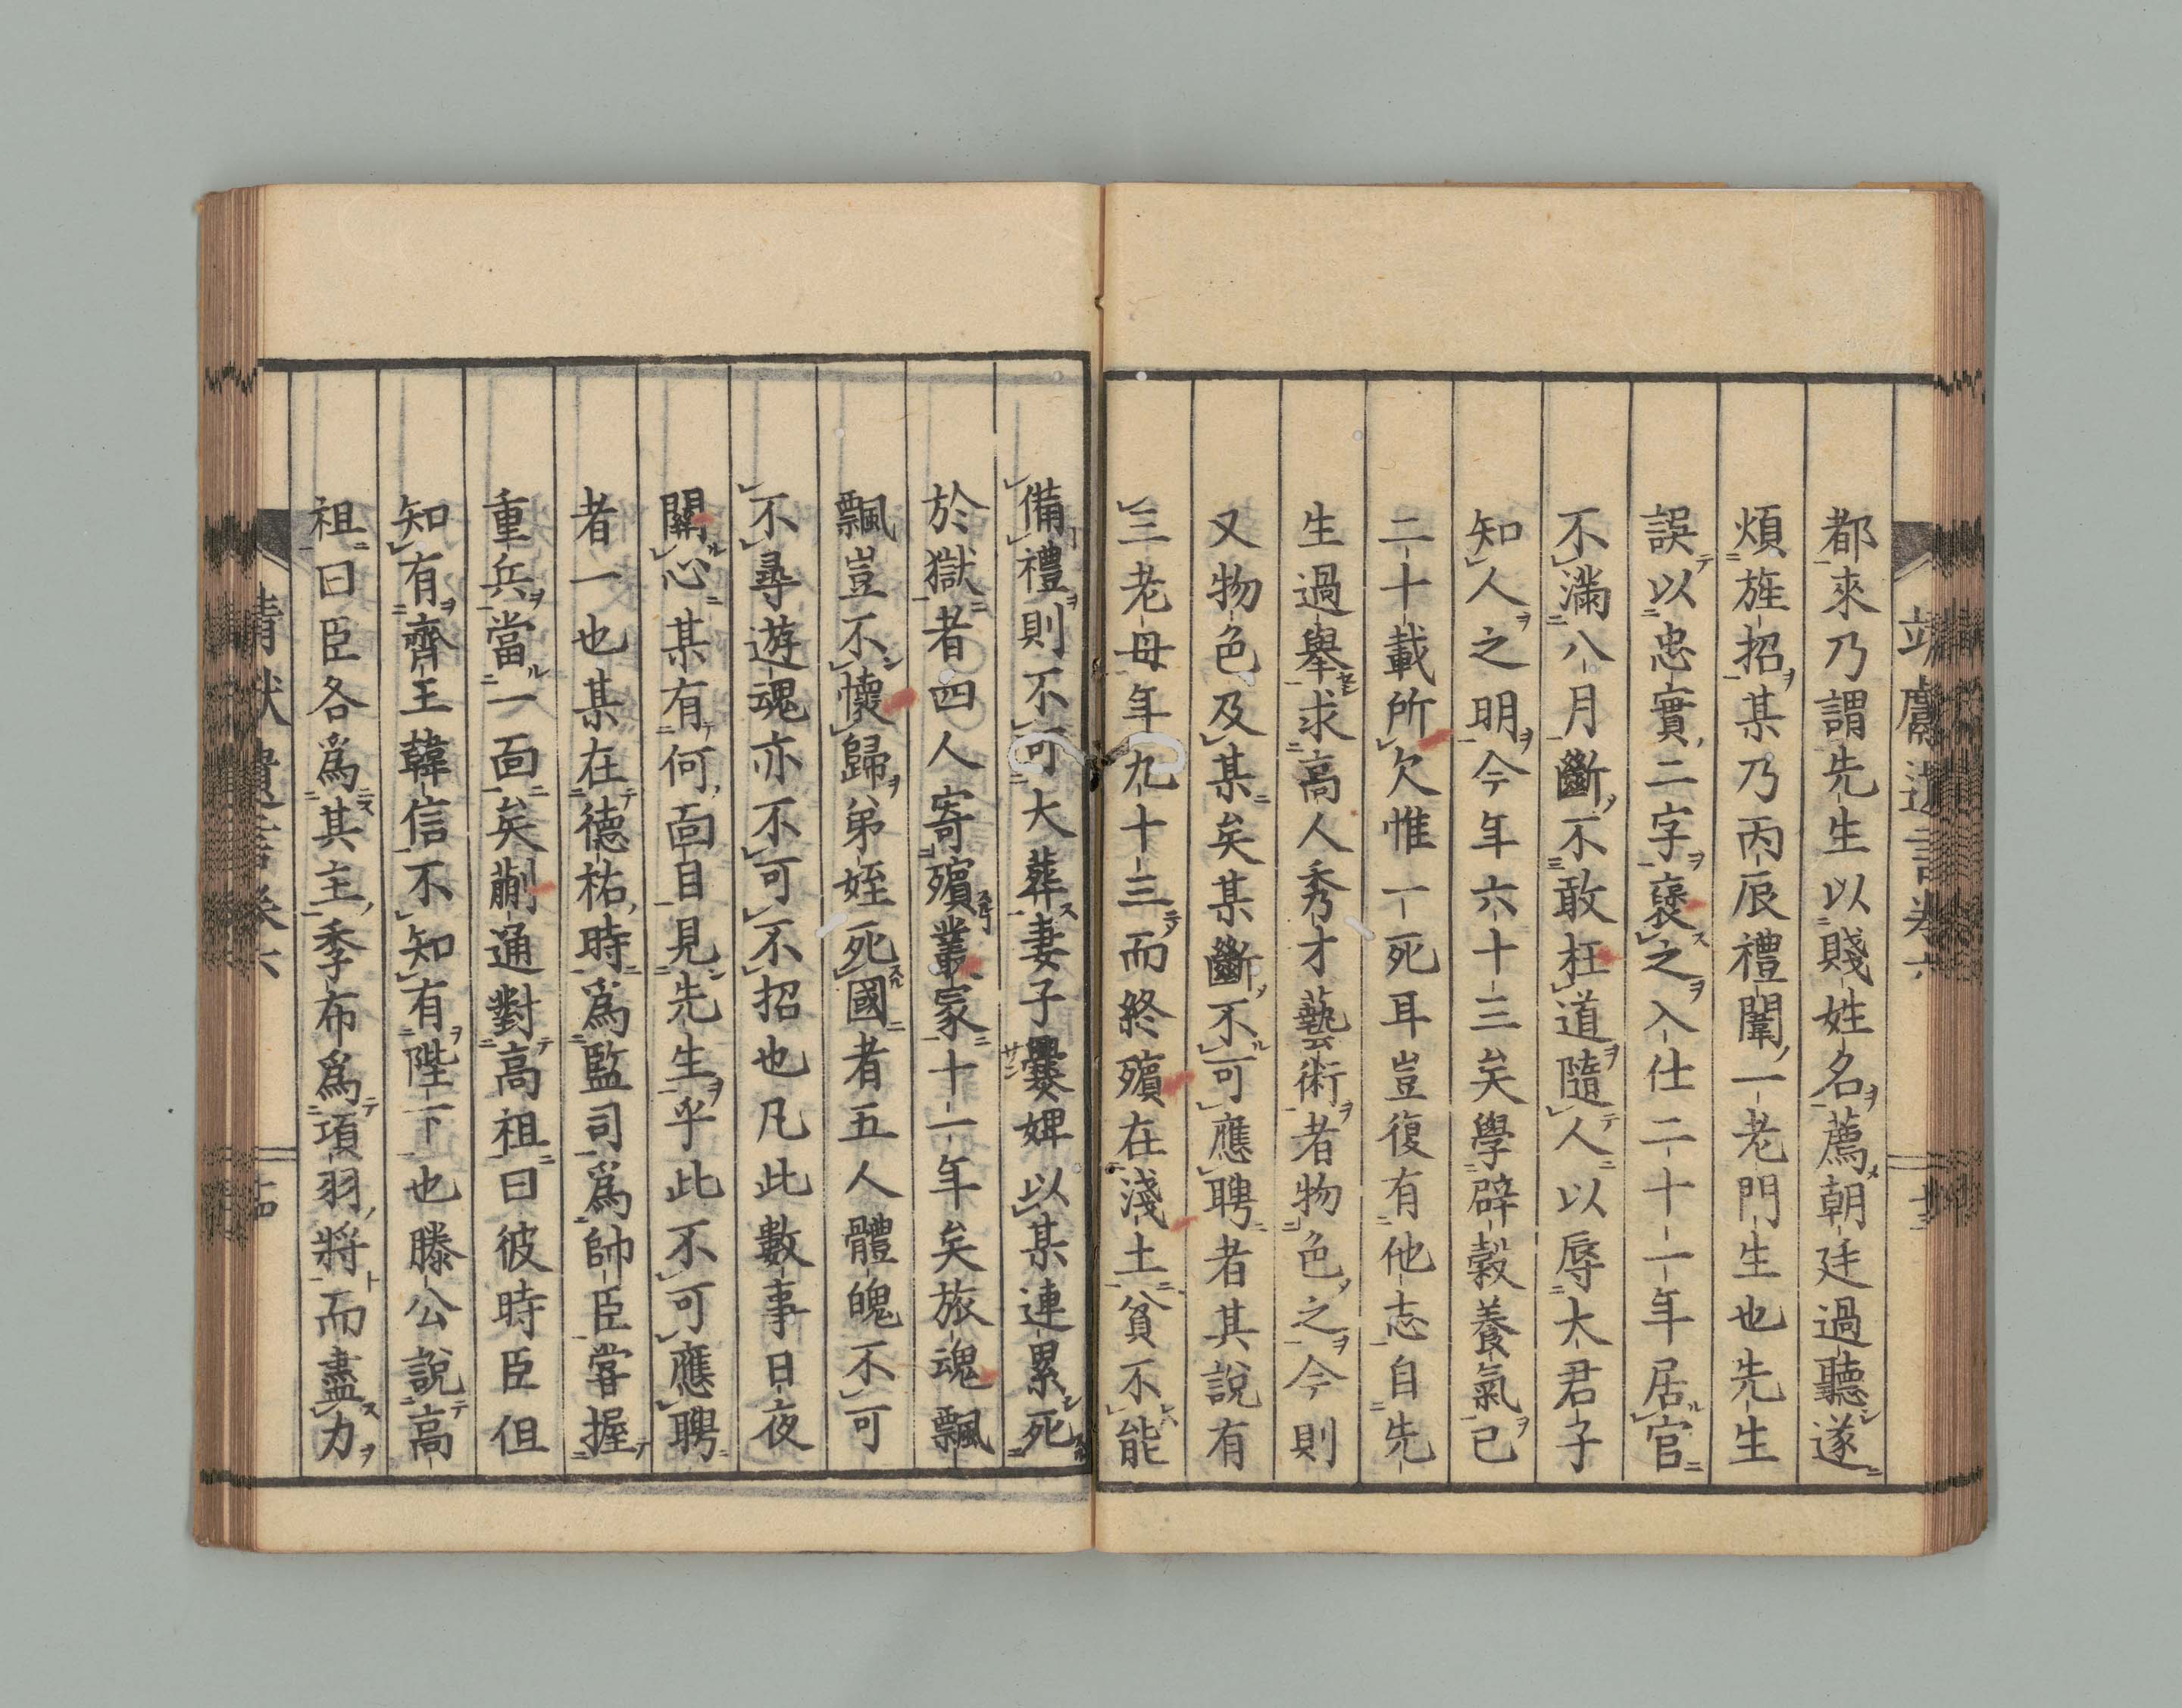 都來乃謂先生以賤姓名薦朝廷過聽遂
煩旌招某乃丙辰禮闈一老門生也先生
誤以忠實二字褒之入仕二十一年居官
不滿八月斷不敢枉道隨人以辱大君子
知人之明今年六十三矣學辟穀養氣已
二十載所欠惟一死耳豈復有他志自先
生過舉求高人秀才藝術者物色之今則
又物色及某矣某斷不可應聘者其說有
三老母年九十三而終殯在淺土貧不能
備禮則不可大葬妻子爨婢以某連累死
於獄者四人寄殯叢冢十一年矣旅魂飄
飄豈不懷歸弟姪死國者五人體魄不可
不尋遊魂亦不可不招也凡此數事日夜
關心某有何面目見先生乎此不可應聘
者一也某在德祐時爲監司爲帥臣嘗握
重兵當一面矣蒯通對高祖曰彼時臣但
知有齊王韓信不知有陛下也滕公說高
祖曰臣各爲其主季布爲項羽將而盡力